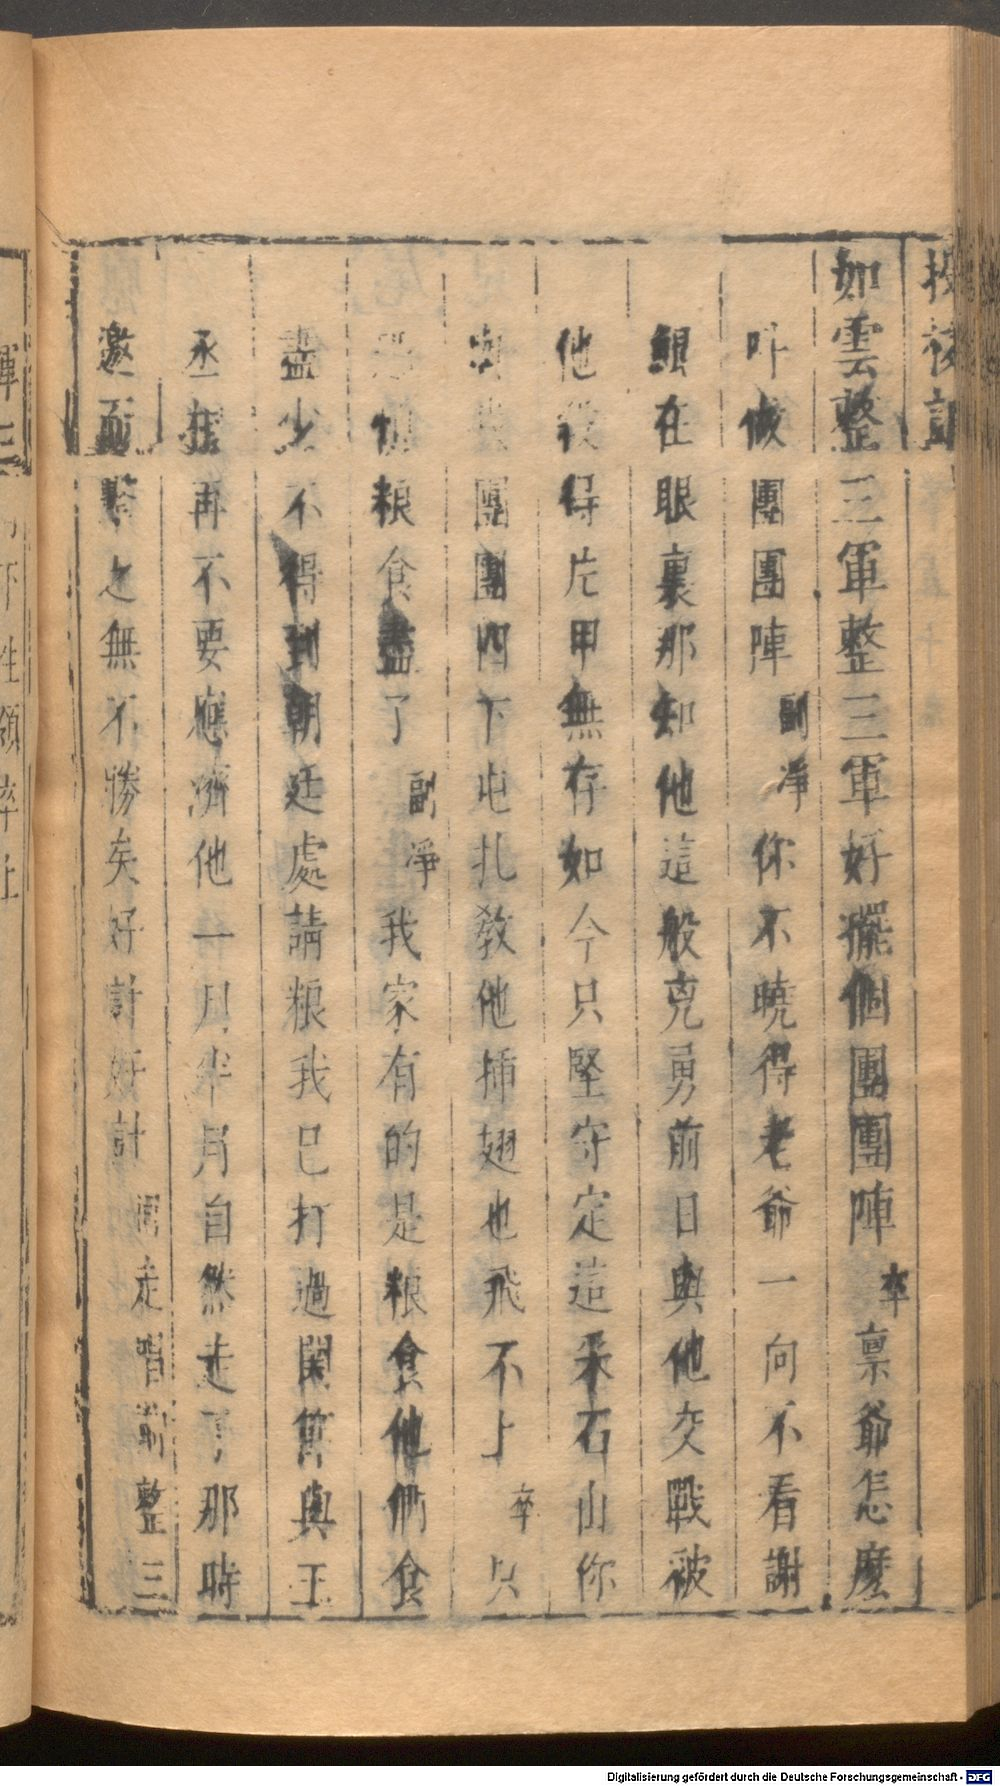 投梭記
如雲整三軍整三軍好擺個團團陣 卒稟爺怎麼
叫做團團陣 副淨你不曉得老爺一向不看謝
鯤在眼裏那知他這般克勇前日與他交戰被
他殺得片甲無存如今只堅守定這采石山你
團團四下屯扎教他插翅也飛不上 卒只
粮食盡了 副淨我家有的是粮食他們食
盡少不得到朝廷處請粮我已打過関節與王
丞相再不要應濟他一月半月自然走了那時
邀而擊之無不勝矣好計好計 走唱前整三